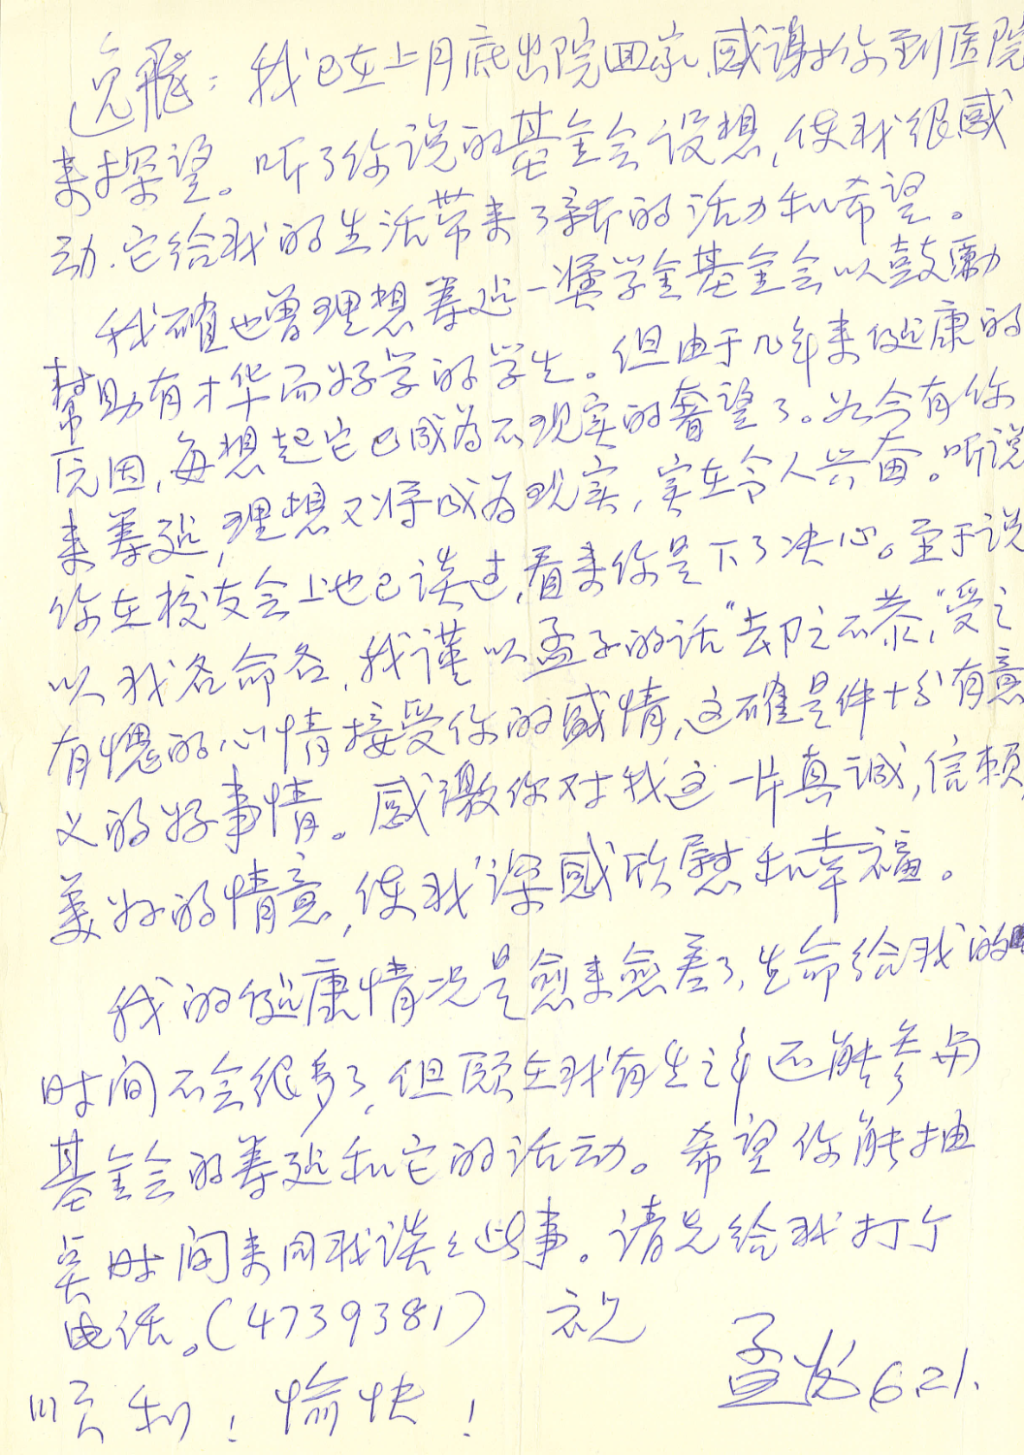 逸飛：我已在上月底出院回家，感谢你到医院
来探望。听了你说的基金会设想，使我很感
动，它给我的生活带来了新的活力和希望。
我確也曾理想筹建一奖学金基金会以鼓勵
幫助有才华而好学的学生。但由于几年来健康的
原因，每想起它已成为不现实的奢望了。如今有你
来筹建，理想又将成为现实，实在令人兴奋。听说
你在校友会上也已谈过，看来你是下了决心。至于说
以我名命名，我谨以孟子的话“却之不恭”，受之
有愧的心情接受你的盛情，这確是件十分有意
义的好事情。感激你对我这一片真诚，信赖，
美好的情意，使我深感欣慰和幸福。
我的健康情况是愈来愈差了，生命给我的
时间不会很多了，但愿在我有生之年还能参与
基金会的筹建和它的活动。希望你能抽
点时间来同我谈谈这些事。请先给我打个
电话。（4739381） 祝
顺利！愉快！
孟 6.21.